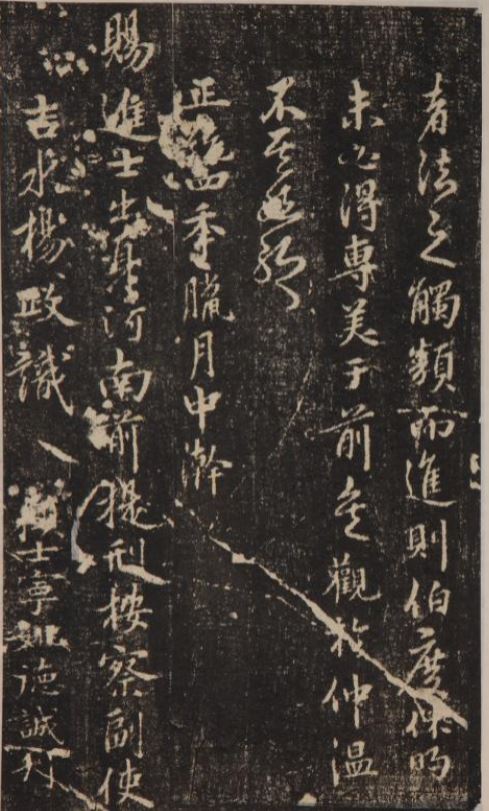 者法之觸類而進則伯度休明
未必得專美于前矣觀於仲温
不其
正統四年臘月中澣
賜進士出身河南前提刑按察副使
吉水楊政識 士寧姚德誠刊